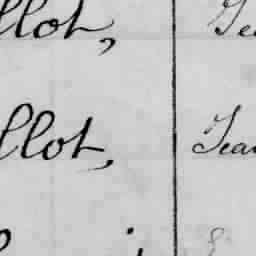 llot, Je
llot, Jea